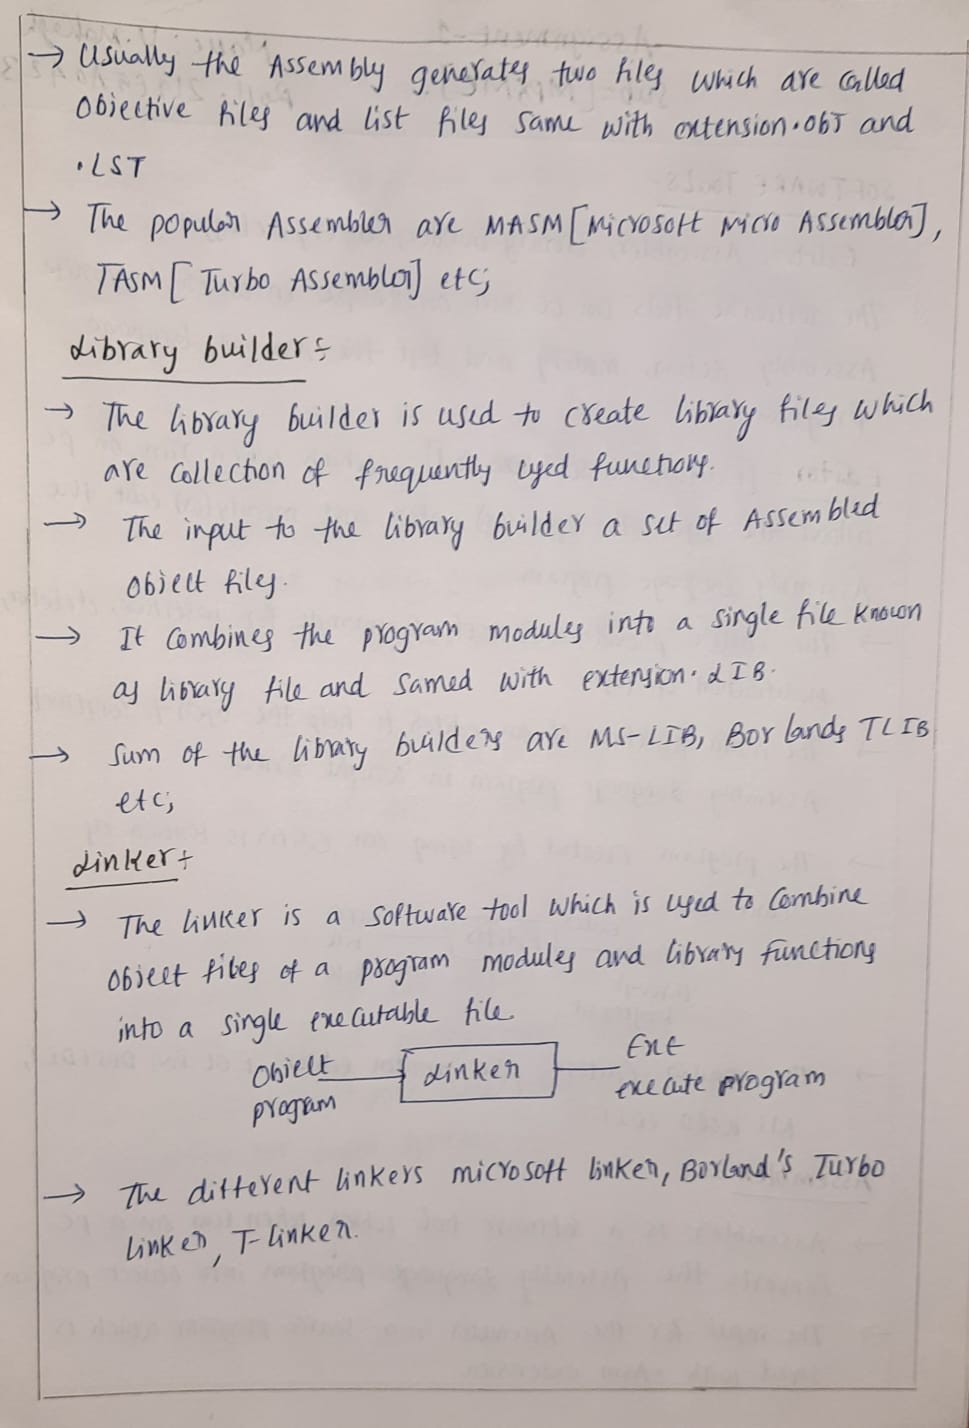 → Usually the Assembly generates two files which are called
Objective files and list files same with extension.OBJ and
.LST
→ The popular Assembler are MASM [Microsoft Micro Assembler],
TASM [Turbo Assembler] etc;
Library builder:-
→ The library builder is used to create library files which
are collection of frequently used functions.
→ The input to the library builder a set of Assembled
object files.
→ It combines the program modules into a single file known
as library file and samed with extension.LIB.
→ Sum of the library builders are MS-LIB, Borlands TLIB
etc;
Linker:-
→ The linker is a software tool which is used to combine
object files of a program modules and library functions
into a single executable file.
Object program
Linker
EXE
execute program
→ The different linkers microsoft linker, Borland's Turbo
linker, T-linker.